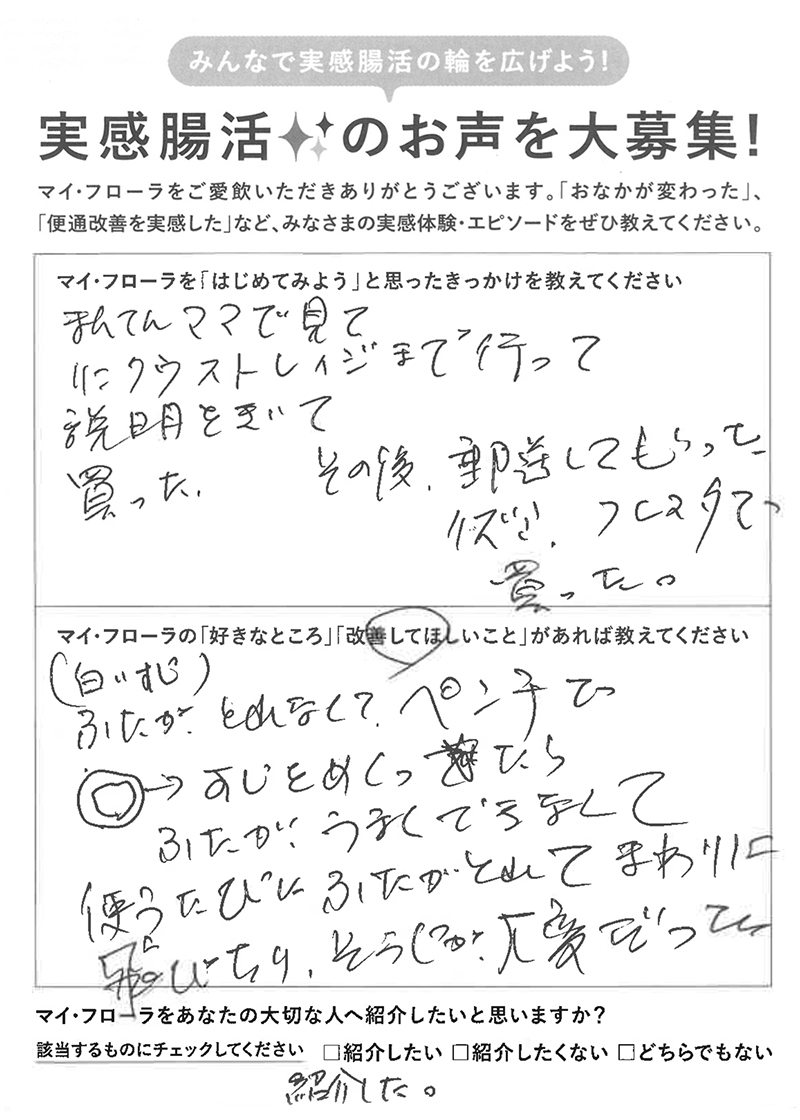 みんなで実感腸活の輪を広げよう!
実感腸活のお声を大募集!
マイ・フローラをご愛飲いただきありがとうございます。「おなかが変わった」、
「便通改善を実感した」など、みなさまの実感体験・エピソードをぜひ教えてください。
マイ・フローラを「はじめてみよう」と思ったきっかけを教えてください
まんてんママで見て
クウストレイジまで行って
説明をきいて
買った. その後、郵送してもらった
フレスタで
買った。
マイ・フローラの「好きなところ」「改善してほしいこと」があれば教えてください
(白いすじ)
ふたが、とれなくて、ペンチで
→すじをめくったら
ふたがうまくできなくて
使うたびにふたがとれてまわりに
飛びちり、そうじが、大変だった
マイ・フローラをあなたの大切な人へ紹介したいと思いますか?
該当するものにチェックしてください □紹介したい □紹介したくない □どちらでもない
紹介した。